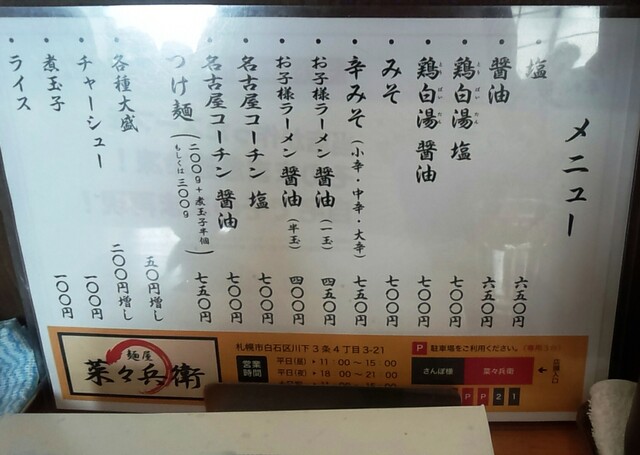 メニュー
・塩 六五〇円
・醤油 六五〇円
・鶏白湯 塩 七〇〇円
・鶏白湯 醤油 七〇〇円
・みそ 七〇〇円
・辛みそ(小辛・中辛・大辛) 七五〇円
・お子様ラーメン 醤油(一玉) 四五〇円
・お子様ラーメン 醤油(半玉) 四〇〇円
・名古屋コーチン 塩 七〇〇円
・名古屋コーチン 醤油 七〇〇円
・つけ麺(二〇〇g+煮玉子半個 もしくは三〇〇g) 七五〇円
・各種大盛 五〇円増し
・チャーシュー 二〇〇円増し
・煮玉子 一〇〇円
・ライス 一〇〇円
麺屋
菜々兵衛
札幌市白石区川下3条4丁目3-21
営業時間
平日(昼) • 11:00〜15:00
平日(夜) • 18:00〜21:00
P 駐車場をご利用ください。
さんぱ様 菜々兵衛
店舗入口
P P 2 1